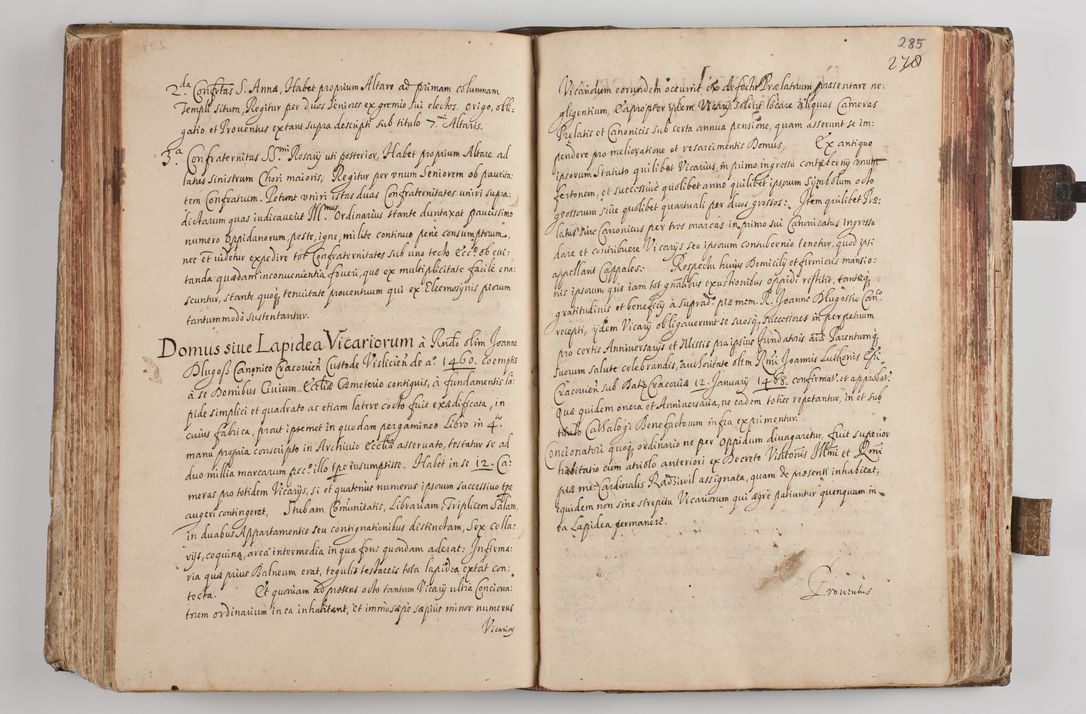 2.da Confrtas S. Annæ, Habet proprium Altare ad primam columnam
Templi situm, Regitur per duos seniores ex gremio sui electos. Origo, obli-
gatio et Prouentus extant supra descripti sub titulo 7.mi Altaris.
3.a Confraternitas SS.mi Rosarij uti posterior, Habet proprium Altare ad
latus sinistrum Chori maioris, Regitur per vnum Seniorem ob paucita-
tem Confratrum. Petunt vniri istas duas Confraternitates vniri supra-
dictarum quas iudicauerit Ill.mus Ordinarius stante duntaxat paucissimo
numero oppidanorum, peste, igne, milite continuo penè consumptorum,
nec et videtur expedire tot Confraternitates sub vno tecto Eccæ ob eui-
tanda quædam inconuenientia foueri, quæ ex multiplicitate facilè ena-
scuntur, stante quoq. tenuitate prouentuum qui ex Eleemosynis piorum
tantummodò sustentantur.
Domus siue Lapidea Vicariorum à Rndo olim Joanne
Dlugoß Canonico Cracouien Custode Visliciën de a.o 1460. coemptis
à se Domibus Ciuium Ecclæ Cœmeterio contiguis, à fundamentis la-
pide simplici et quadrato ac etiam latere cocto fuit exædificata, in
cuius fabrica, prout ipsemet in quodam pergamineo Libro in 4.to
manu propria conscripto in Archiuio Ecclæ asseruato, testatur se ad
duo millia marcarum pec. illo tpe insumpsisse. Habet in se 12. Ca-
meras pro totidem Vicarijs, si et quatenus numerus ipsorum successiuo tpe
augeri contingeret, Stubam Comunitatis, Librariam, Triplicem Salam,
in duabus Appartamentis seu contignationibus distinctam, Sex cella-
rijs, coquina, area intermedia in qua fons quondam aderat: Infirma-
ria quæ prius Balneum erat, tegulis testaceis tota lapidea extat con-
tecta. Et quoniam ad præsens octo tantum Vicarij ultra Conciona-
torem ordinarium in ea inhabitant, et immo sæpe sæpius minor numerus
Vicarior
285
278
Vicariorum eorundem occurrit ex defectu Prælatrum præsentare ne-
gligentium, Eapropter ijdem Vicarij solent locare aliquas Cameras
Prælatis et Canonicis sub certa annua pensione, quam asserunt se im-
pendere pro melioratione et resarcimentis Domus, Ex antiquo
ipsorum Statuto quilibet Vicarius, in primo ingressu contubernij vnum
fertonem, et successiuè quolibet anno quilibet ipsorum Symbolum octo
grossorum siue quolibet quartuali per duos grossos: Item quilibet Præ-
latus siue Canonicus per tres marcas in primo sui Canonicatus ingressu
dare et contribuere Vicarijs seu ipsorum contubernio tenetur, quod ipsi
appellant Cappales: Respectu huius Domicilij et firmioris mansio-
nis ipsorum quæ iam tot gnalibus exustionibus oppidi restitit, tantæq
gratitudinis et beneficij à suprad. piæ mem. R. Joanne Dlugossio Can.co
recepti, ijdem Vicarij obligauerunt se suosq successores in perpetuum
pro certis Anniuersarijs et Missis pro ipsius fundatoris aut Parentumq
suorum salute celebrandis, autoritate olim Rmi Joannis Lutkonis Epi
Cracouien sub Data Cracouiæ 12. January 1468. confirmat. et approbat.
Quæ quidem onera et Anniuersaria, ne eadem toties repetantur, in et sub
titulo Cathalogi Benefactorum infra exprimentur.
Concionatori quoq ordinario ne per Oppidum diuagaretur, fuit superior
habitatio cum atriolo anteriori ex Decreto Visitonis Illmi et Rmi
piæ me: Cardinalis Radziuil assignata, quam de præsenti inhabitat,
equidem non sine strepitu Vicariorum qui ægrè patiuntur quenquam in
ea Lapidea permanere.
Prouentus